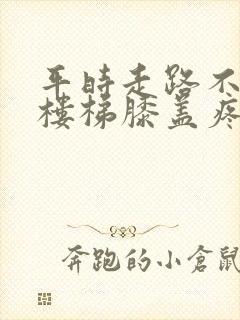 平时走路不
楼梯膝盖疼
奔跑的小倉鼠